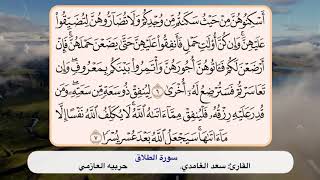 أَسْكِنُوهُنَّ مِنْ حَيْثُ سَكَنتُم مِّن وُجْدِكُمْ وَلَا تُضَآرُّوهُنَّ لِتُضَيِّقُوا۟
عَلَيْهِنَّ ۚ وَإِن كُنَّ أُو۟لَٰتِ حَمْلٍ فَأَنفِقُوا۟ عَلَيْهِنَّ حَتَّىٰ يَضَعْنَ حَمْلَهُنَّ ۚ فَإِنْ
أَرْضَعْنَ لَكُمْ فَـَٔاتُوهُنَّ أُجُورَهُنَّ ۖ وَأْتَمِرُوا۟ بَيْنَكُم بِمَعْرُوفٍ ۖ وَإِن
تَعَاسَرْتُمْ فَسَتُرْضِعُ لَهُۥٓ أُخْرَىٰ ٦ لِيُنفِقْ ذُو سَعَةٍ مِّن سَعَتِهِۦ ۖ وَمَن
قُدِرَ عَلَيْهِ رِزْقُهُۥ فَلْيُنفِقْ مِمَّآ ءَاتَىٰهُ ٱللَّهُ ۚ لَا يُكَلِّفُ ٱللَّهُ نَفْسًا إِلَّا
مَآ ءَاتَىٰهَا ۚ سَيَجْعَلُ ٱللَّهُ بَعْدَ عُسْرٍ يُسْرًا ٧
سورة الطلاق
القارئ: سعد الغامدي. حربيه العازمي